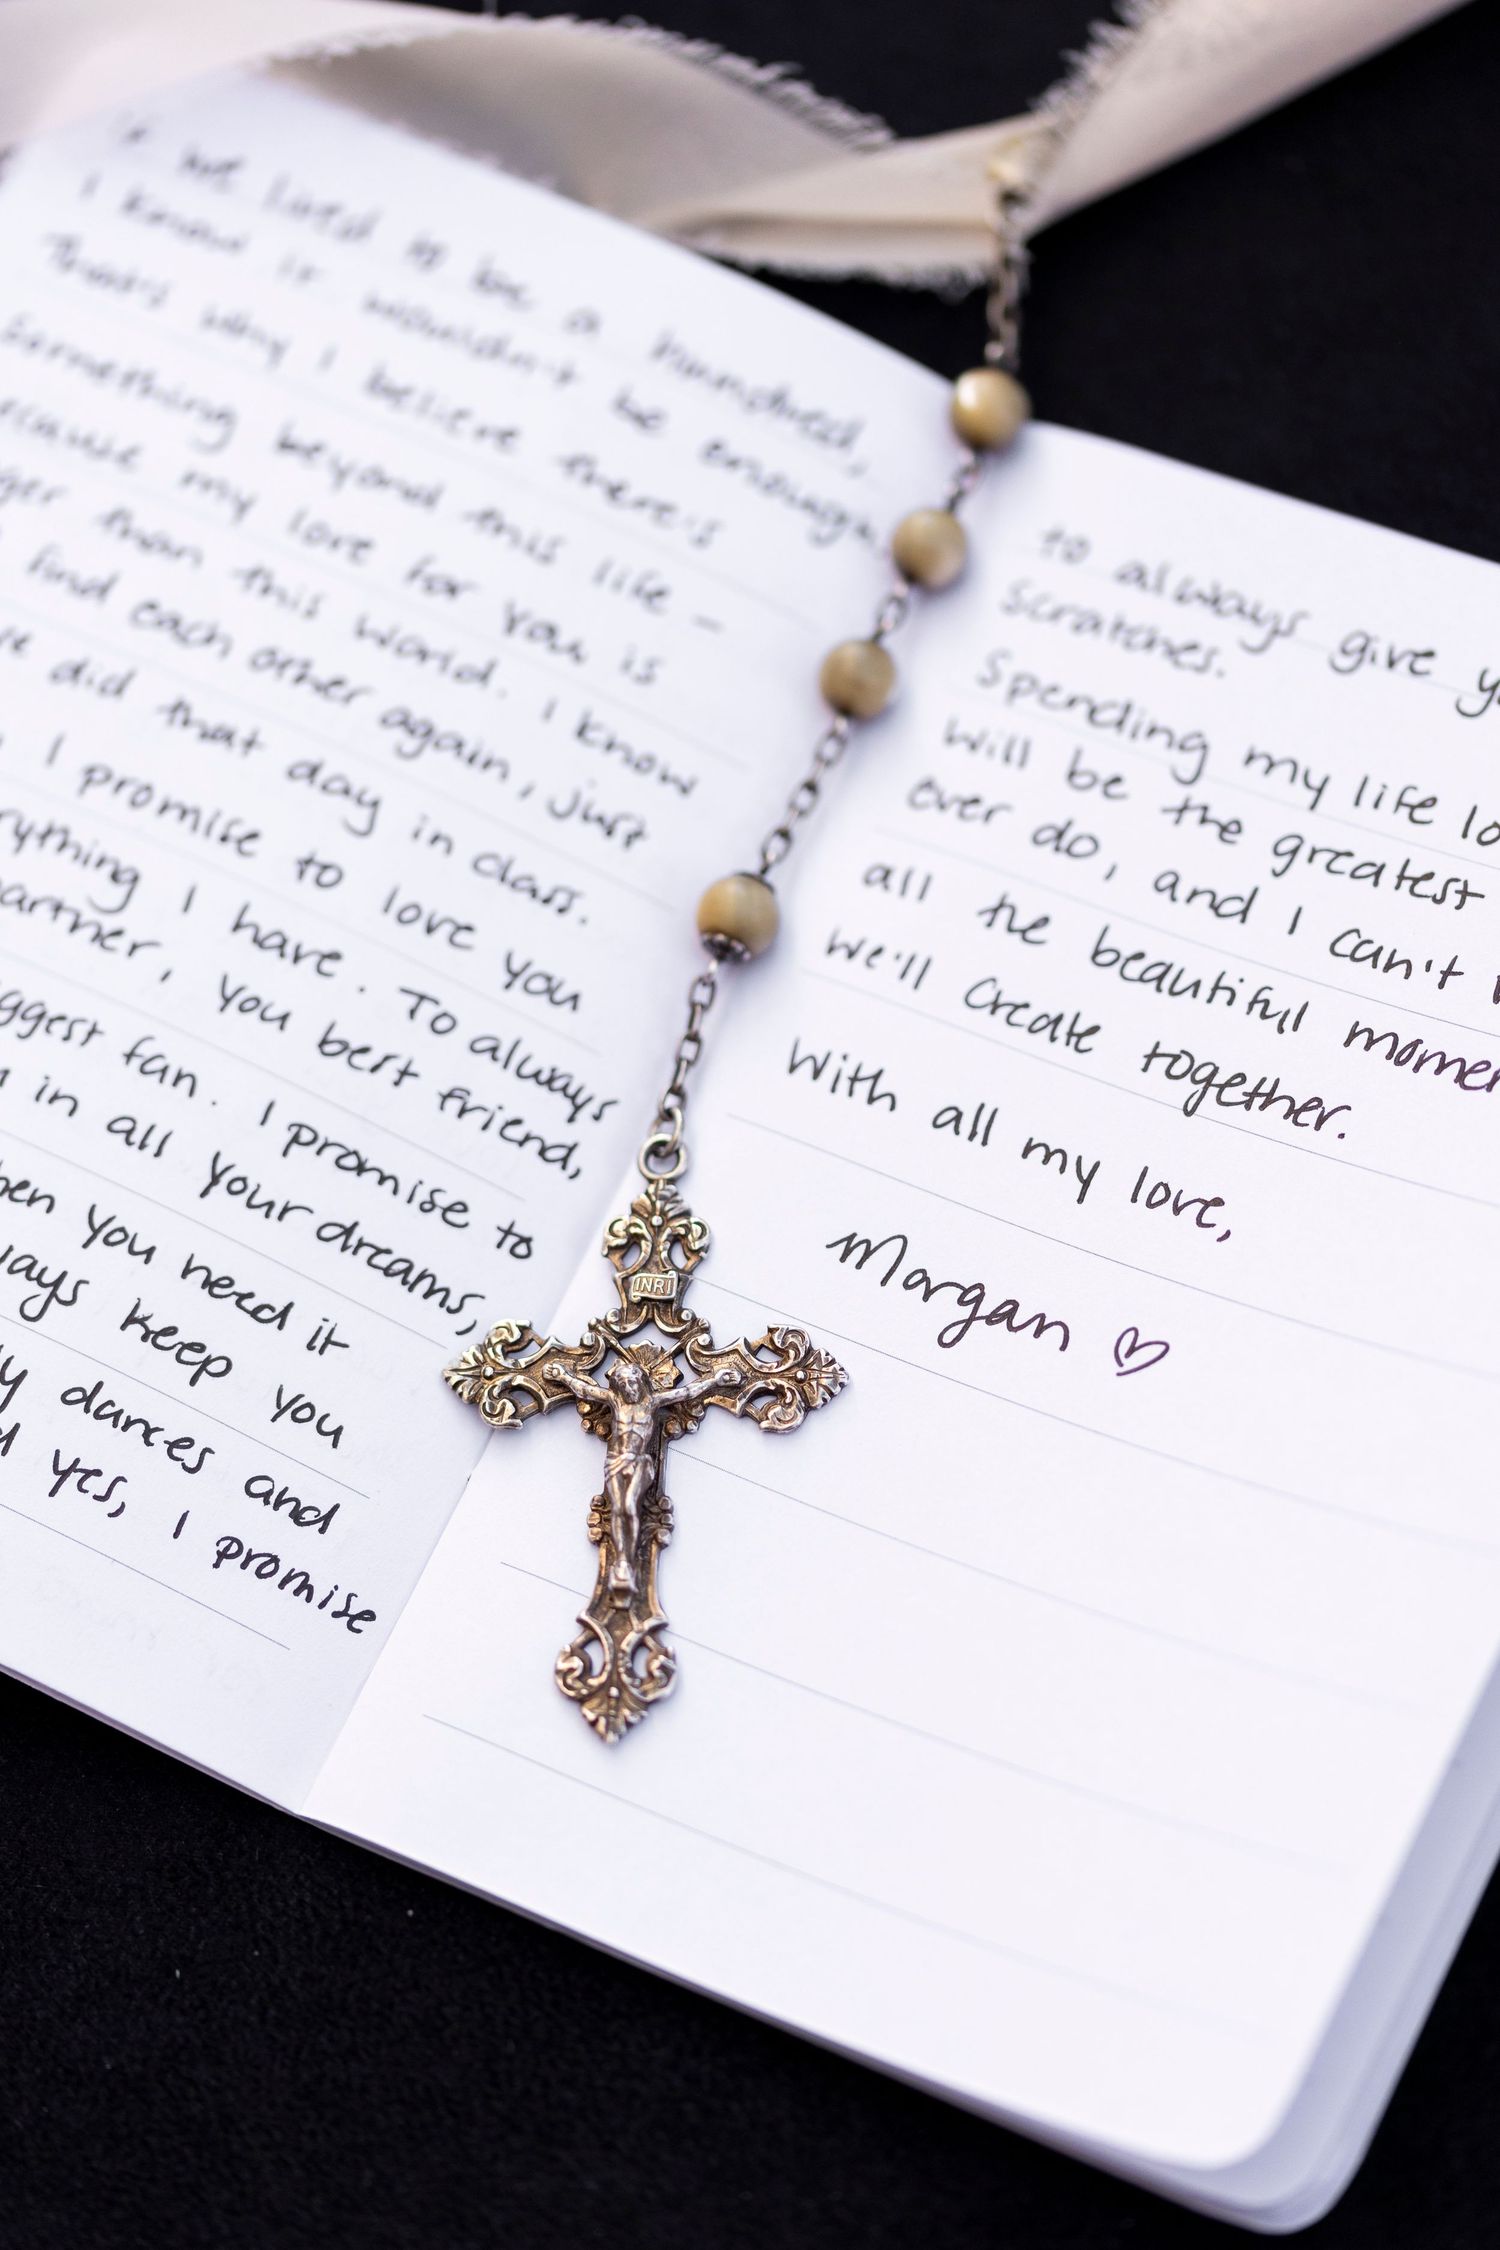 If we lived to be a hundred,
I know it wouldn't be enough
That's why I believe there's
Something beyond this life -
my love for you is
than this world. I know
find each other again, just
did that day in class.
I promise to love you
I have. To always
partner, you best friend,
fan. I promise to
in all your dreams,
you need it
keep you
dances and
yes, I promise
to always give
scratches.
Spending my life
will be the greatest
ever do, and I can't
all the beautiful
we'll create together.
With all my love,
Morgan ♡
INRI